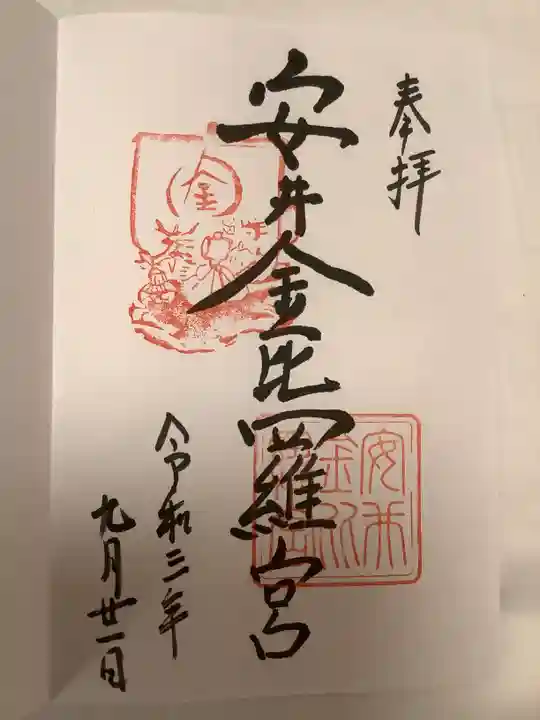 奉拝
安井金比羅宮
令和三年
九月廿一日
金
安井
金比
羅宮